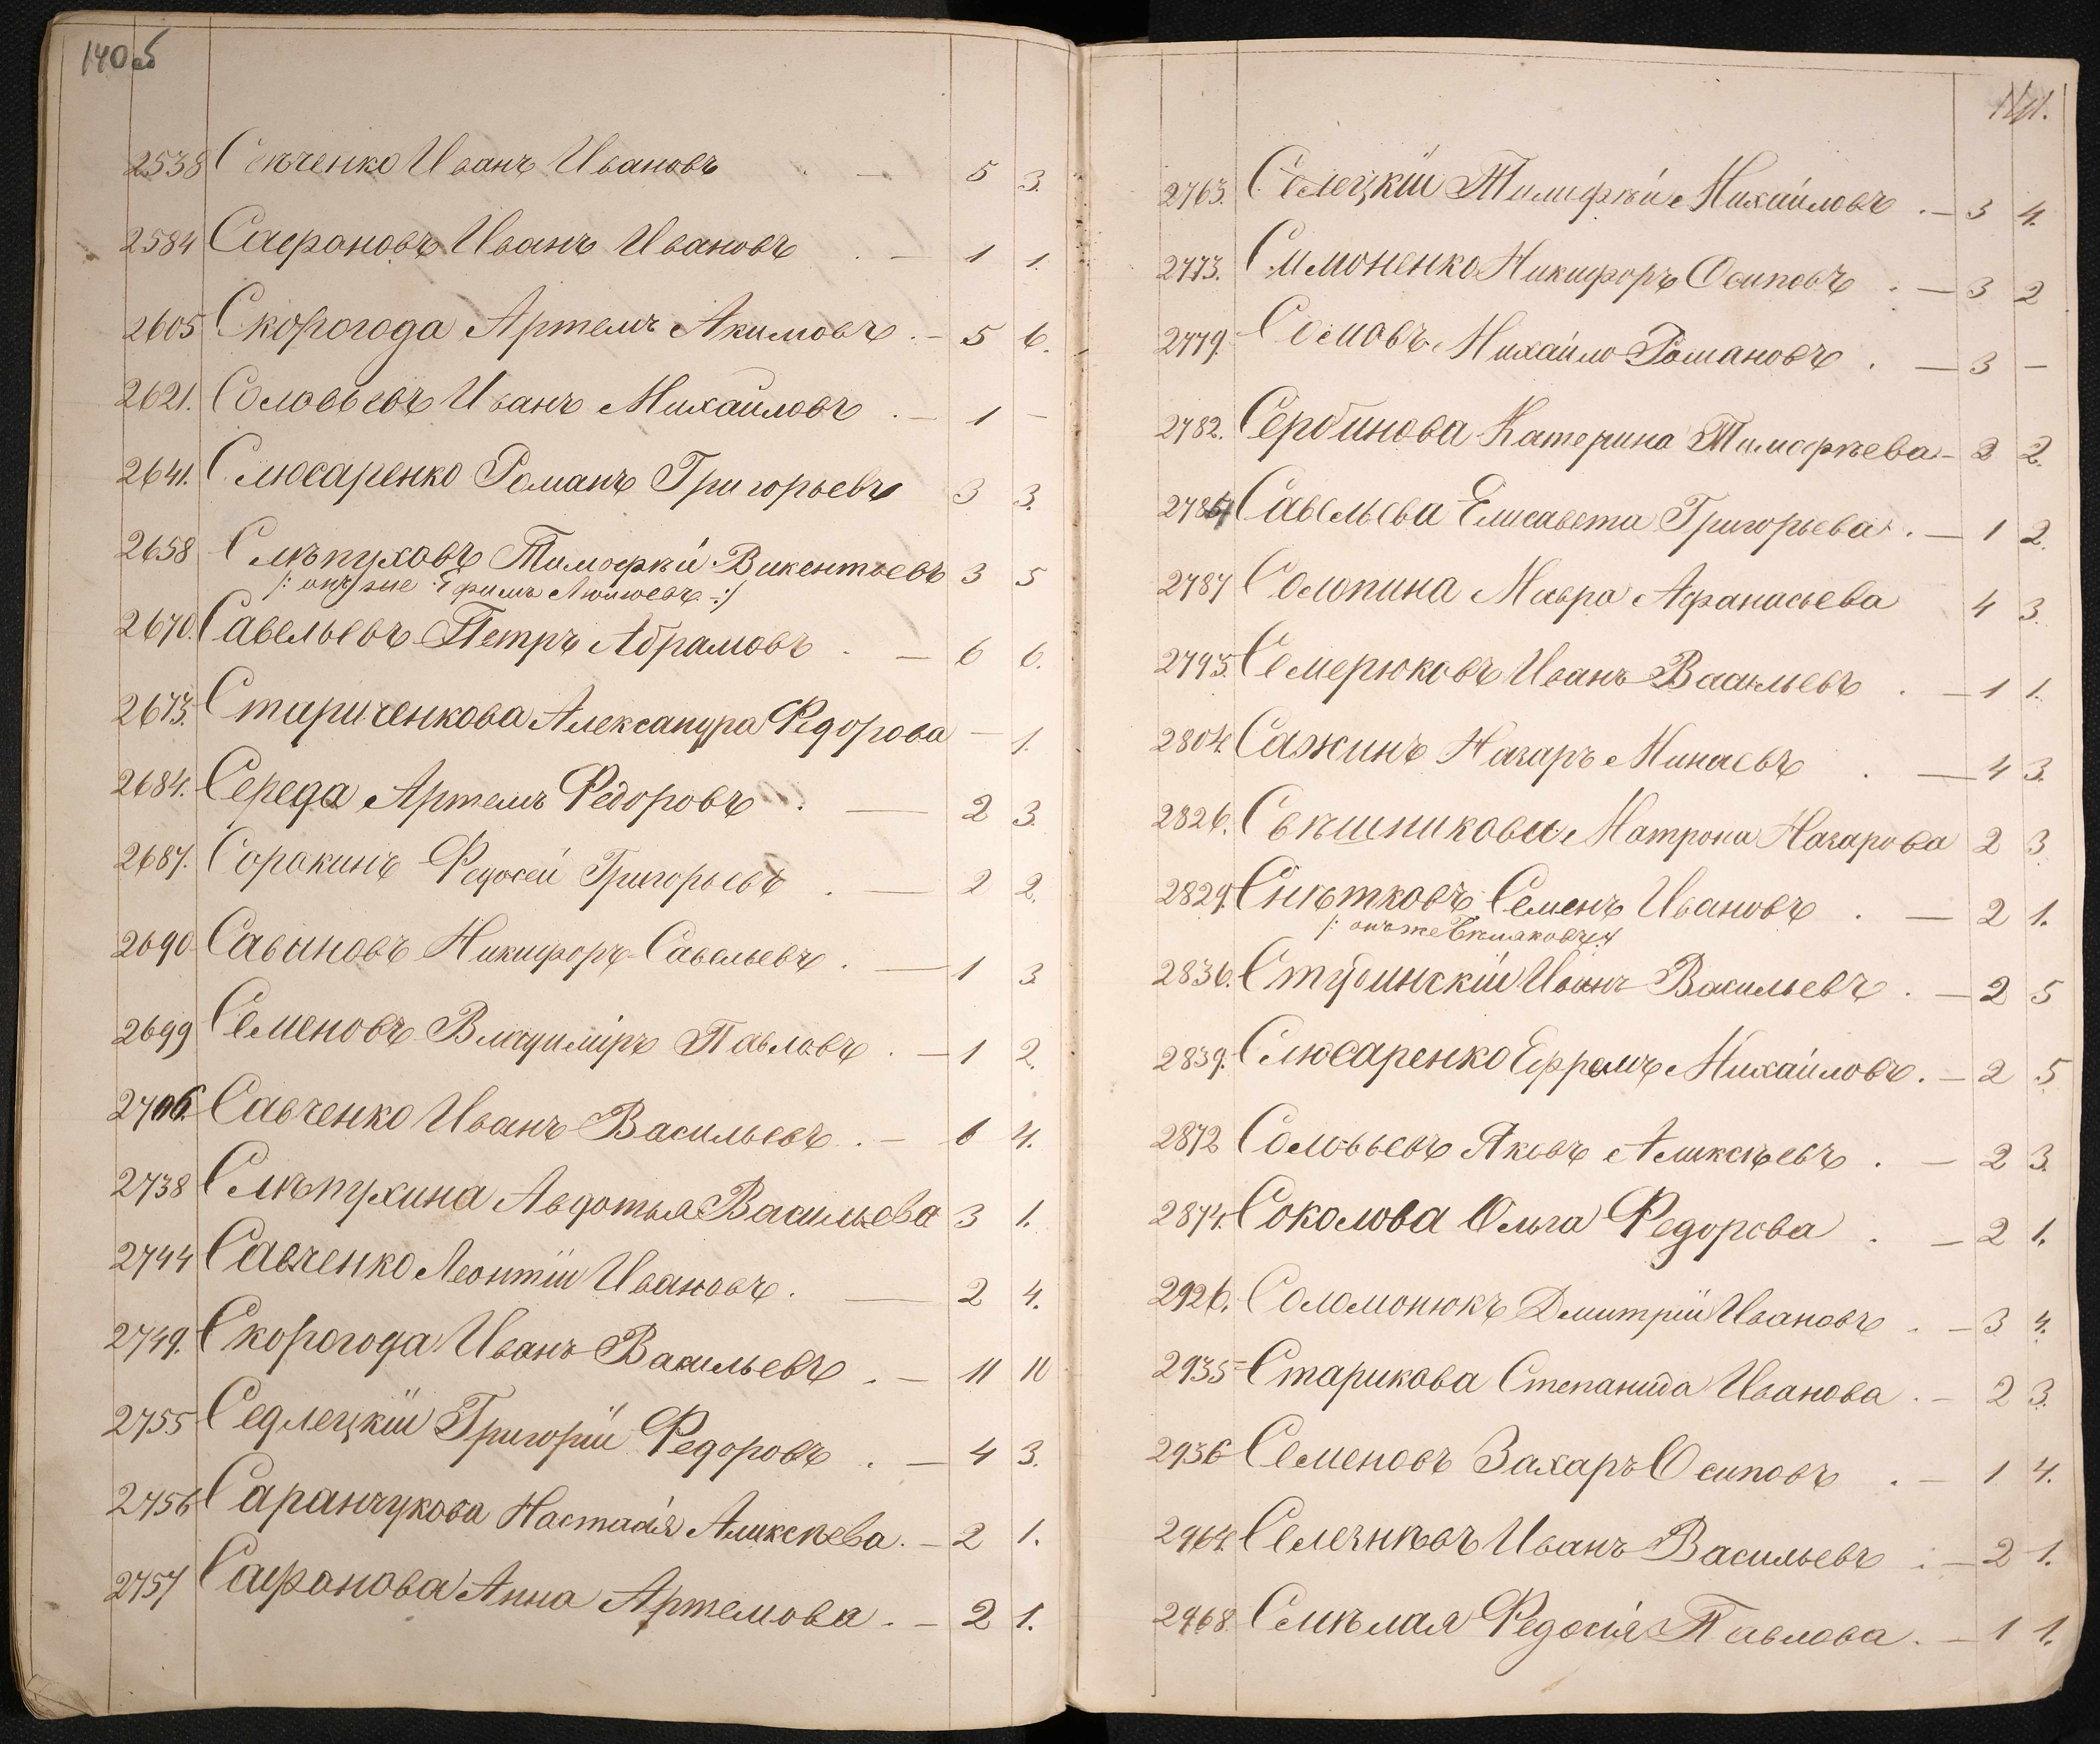 140об
2538 Сѣкченко Иванъ Ивановъ — 5 3.
2584 Сафроновъ Иванъ Ивановъ . — 1 1.
2605 Скорогода Артемъ Акимовъ . — 5 6.
2621. Соловьевъ Иванъ Михайловъ . — 1 —
2641. Слюсаренко Романъ Григорьевъ 3 3.
2658 Слѣпуховъ Тимофѣй Викентьевъ 3 5
/: онъ же Ефимъ :/
2670. Савельевъ Петръ Абрамовъ . — 6 6.
2673. Стариченкова Александра Федорова — 1.
2684. Середа Артемъ Федоровъ . — 2 3.
2687. Сорокинъ Федосей Григорьевъ . — 2 2.
2690 Савиновъ Никифоръ Савельевъ . — 1 3
2699 Семеновъ Владиміръ Павловъ . — 1 2.
2706. Савченко Иванъ Васильевъ . — 6 4.
2738 Слѣпухина Авдотья Васильева 3 1.
2744 Савченко Леонтій Ивановъ . — 2 4.
2749. Скорогода Иванъ Васильевъ . — 11 10
2755 Седлецкій Григорій Федоровъ . — 4 3.
2756 Саранчукова Настасія Аликсѣева . — 2 1.
2757 Сафронова Анна Артемова . — 2 1.
141.
2763. Селецкій Тимифѣй Михайловъ . — 3 4.
2773. Симоненко Никифоръ Осиповъ . — 3 2
2779. Сомовъ Михайло Романовъ . — 3 —
2782. Сербинова Катерина Тимофѣева — 3 2.
2784 Савельева Елисавета Григорьева . — 1 2.
2787 Солопина Мавра Афанасьева 4 3.
2795. Семерюковъ Иванъ Васильевъ . — 1 1.
2804. Сажинъ Назаръ Минаевъ . — 4 3.
2826. Свѣшникова Матрона Назарова 2 3.
2829. Снѣтковъ Семенъ Ивановъ . — 2 1.
/: онъ же Бѣляковъ :/
2836. Студинскій Иванъ Васильевъ . — 2 5
2839. Слюсаренко Ефремъ Михайловъ . — 2 5
2872 Соловьевъ Яковъ Аликсѣевъ . — 2 3.
2874. Соколова Ольга Федорова . — 2 1.
2926. Соломонюкъ Дмитрій Ивановъ . — 3 4.
2935 Старикова Степанида Иванова . — 2 3.
2936 Семеновъ Захаръ Осиповъ . — 1 4.
2964. Селезнѣвъ Иванъ Васильевъ . — 2 1.
2968. Смѣлая Федосія Павлова . — 1 1.